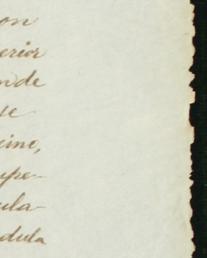 on
erior
nde
se
cino,
upe-
ula-
dula